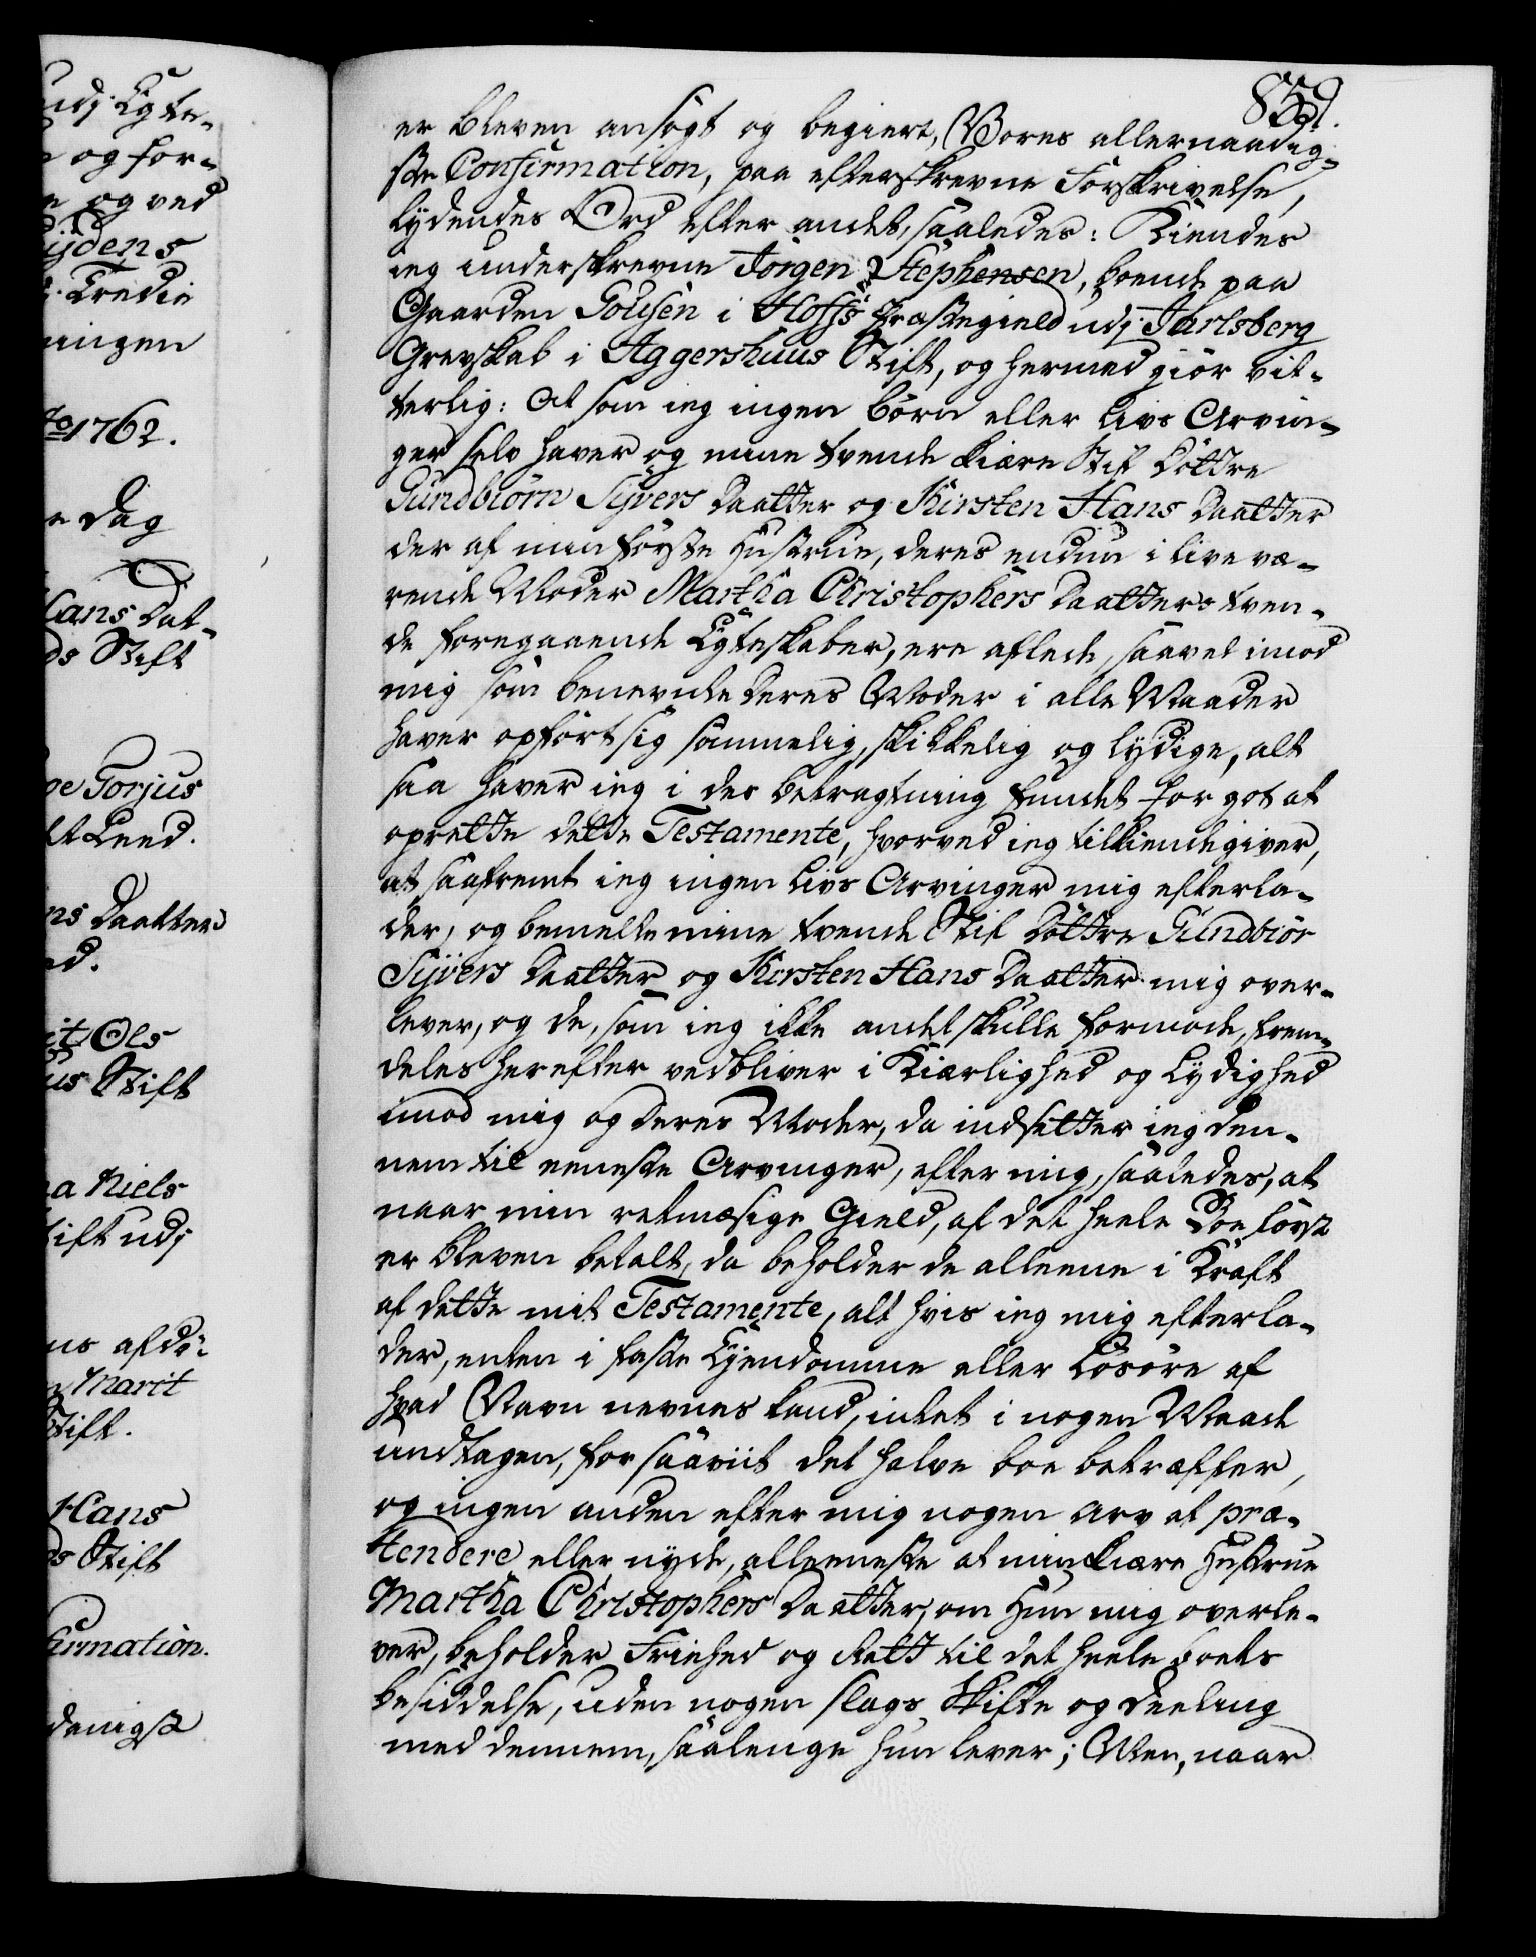 udj Egte-
og for-
e og ved
ijdens
Tredie
ningen
to 1762.
e Dag
Hans Dat-
ds Stift
pe Torjus
lt Leed.
ns Daatter
ed.
it Ols
us Stift
na Niels
tift udj
us afdö-
Marit
Stift.
Hans
ds Stift
firmation.
danigst
859.
er bleven ansögt og begiert, Vores allernaadig-
ste Confirmation, paa efterskrevne Forskrivelse,
lydendes Ord efter andet, saaledes: Kiendes
ieg underskrevne Jörgen Stephensen, boende paa
Gaarden Solisen i Hoffs Præstegield udj Jarlsberg
Grevskab i Aggershuus Stift, og hermed giör vit-
terlig: At som ieg ingen Börn eller Livs Arvin-
ger selv haver og mine tvende kiære Stif Döttre
Gundbiörn Sijvers Daatter og Kirsten Hans Daatter
der af min förste Hustrue, deres endnu i live væ-
rende Moder Martha Christophers Daatters tven-
de foregaaende Egteskaber, ere aflede, saavel imod
mig som benevnde deres Moder i alle Maader
haver opfört sig sömmelig, skikkelig og lydige, alt
saa haver ieg i des betragtning fundet for got at
oprette dette Testamente, hvorved ieg tilkiendegiver,
at saafremt ieg ingen Livs Arvinger mig efterla-
der, og bemelte mine tvende Stif Döttre Gundbiör
Sijvers Daatter og Kirsten Hans Daatter mig over-
lever, og de, som ieg ikke andet skulle formode, frem-
deles herefter vedbliver i Kiærlighed og Lydighed
imod mig og deres Moder, da indsetter ieg den-
nem til eeneste Arvinger, efter mig, saaledes, at
naar min retmæsige Gield, af det heele Boe först
er bleven betalt, da beholder de alleene i Kraft
af dette mit Testamente, alt hvis ieg mig efterla-
der, enten i faste Ejendomme eller Lösöre af
hvad Navn nevnes kand, intet i nogen Maade
undtagen, for saaviit det halve boe betræffer,
og ingen anden efter mig nogen Arv at præ-
tendere eller nyde, alleeneste at min kiære Hustrue
Martha Christophers Daatter, om Hun mig overle-
ver, beholder Friehed og Rett til det heele boets
besiddelse, uden nogen slags Skifte og deeling
med dennem, saalenge hun lever; Men, naar